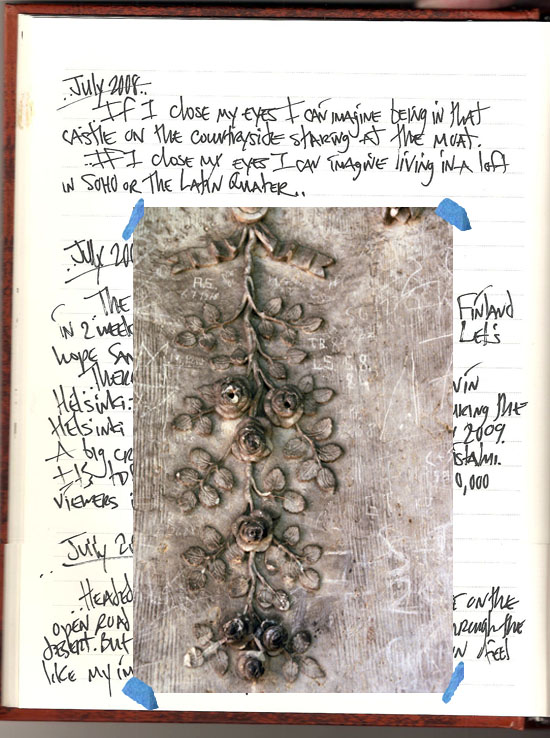 ..July 2008..
..IF I close my eyes I can imagine being in that
castle on the countryside staring at the moat.
..IF I close my eyes I can imagine living in a loft
in SOHO or the Latin Quater..
..July 200
The Finland
in 2 week Let's
hope San
There in
Helsinki: king the
Helsinki 2009.
A big cr
It's to 0,000
viewers
..July 20
..Headed e on the
open road through the
desert. But n feel
like my im